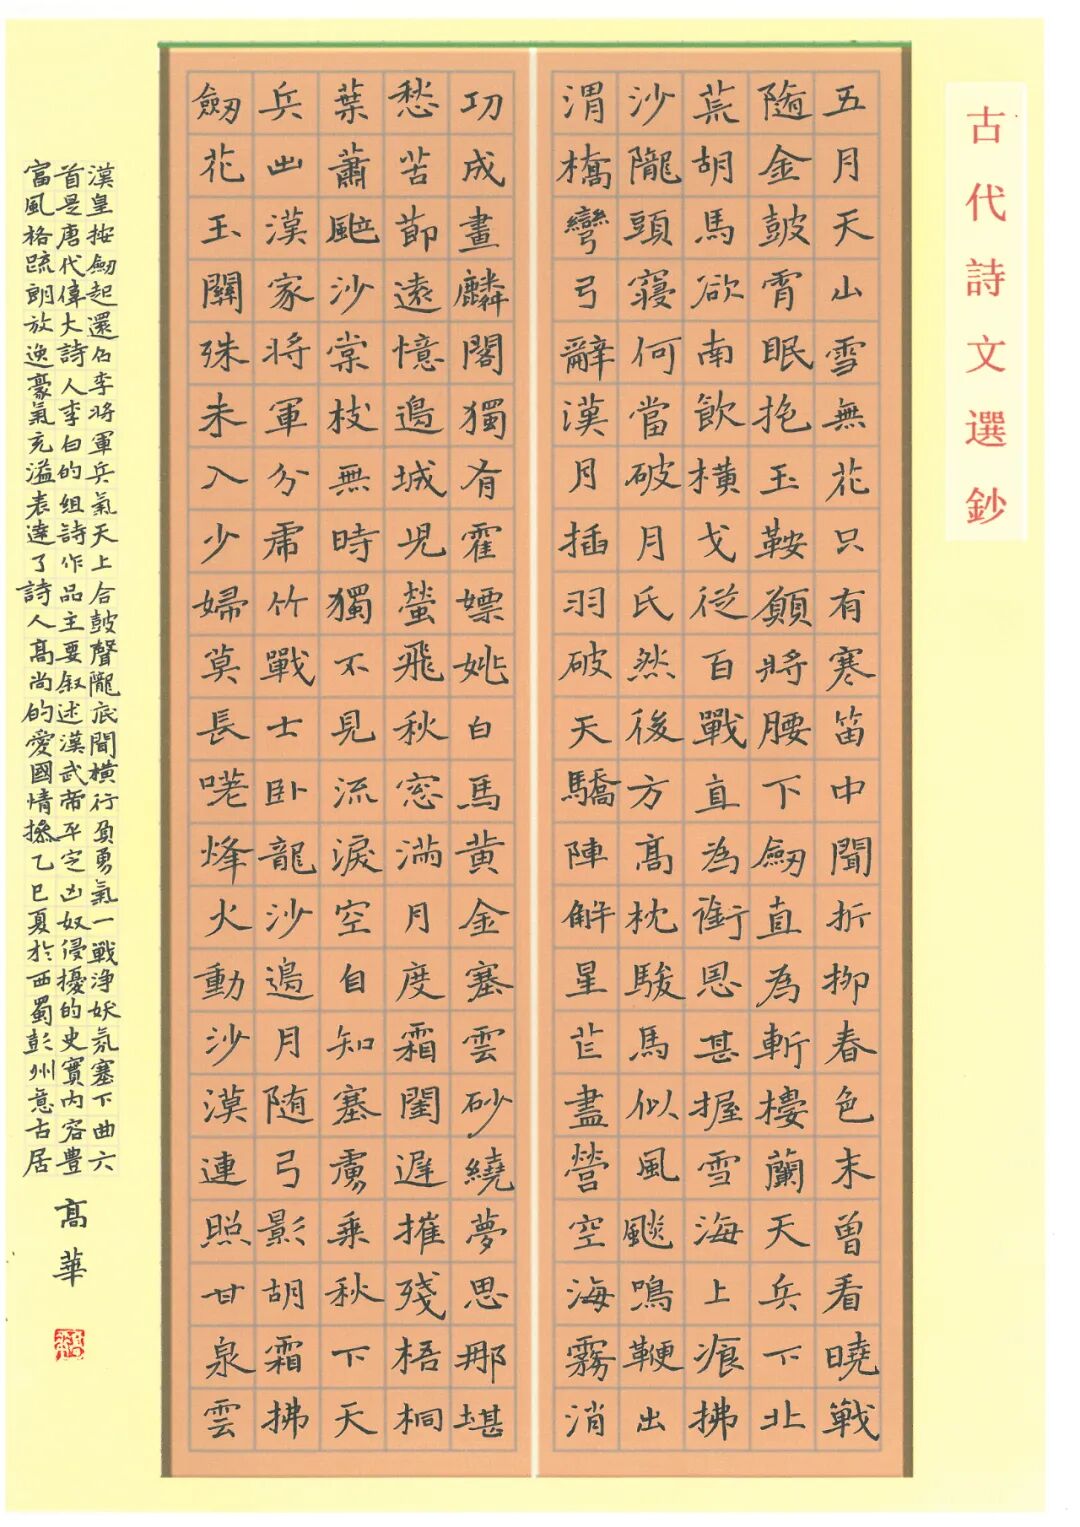 古代詩文選鈔
五月天山雪無花只有寒笛中聞折柳春色未曾看曉戰
隨金鼓宵眠抱玉鞍願將腰下劒直為斬樓蘭天兵下北
荒胡馬欲南飲橫戈從百戰直為銜恩甚握雪海上痕拂
沙隴頭寢何當破月氏然後方高枕駿馬似風飈鳴鞭出
渭橋彎弓辭漢月插羽破天驕陣解星芒盡營空海霧消
功成畫麟閣獨有霍嫖姚白馬黃金塞雲砂繞夢思那堪
愁苦節遠憶邊城兒螢飛秋窓滿月度霜閨遲摧殘梧桐
葉蕭颯沙棠枝無時獨不見流淚空自知塞虜乘秋下天
兵出漢家將軍分虎竹戰士卧龍沙邊月随弓影胡霜拂
劒花玉關殊未入少婦莫長嗟烽火動沙漠連照甘泉雲
漢皇按劒起還召李將軍兵氣天上合鼓聲隴底聞橫行負勇氣一戰淨妖氛塞下曲六
首是唐代偉大詩人李白的組詩作品主要叙述漢武帝平定凶奴侵擾的史實内容豐
富風格疏朗放逸豪氣充溢表達了詩人高尚的愛國情操乙巳夏於西蜀彭州意古居
高華